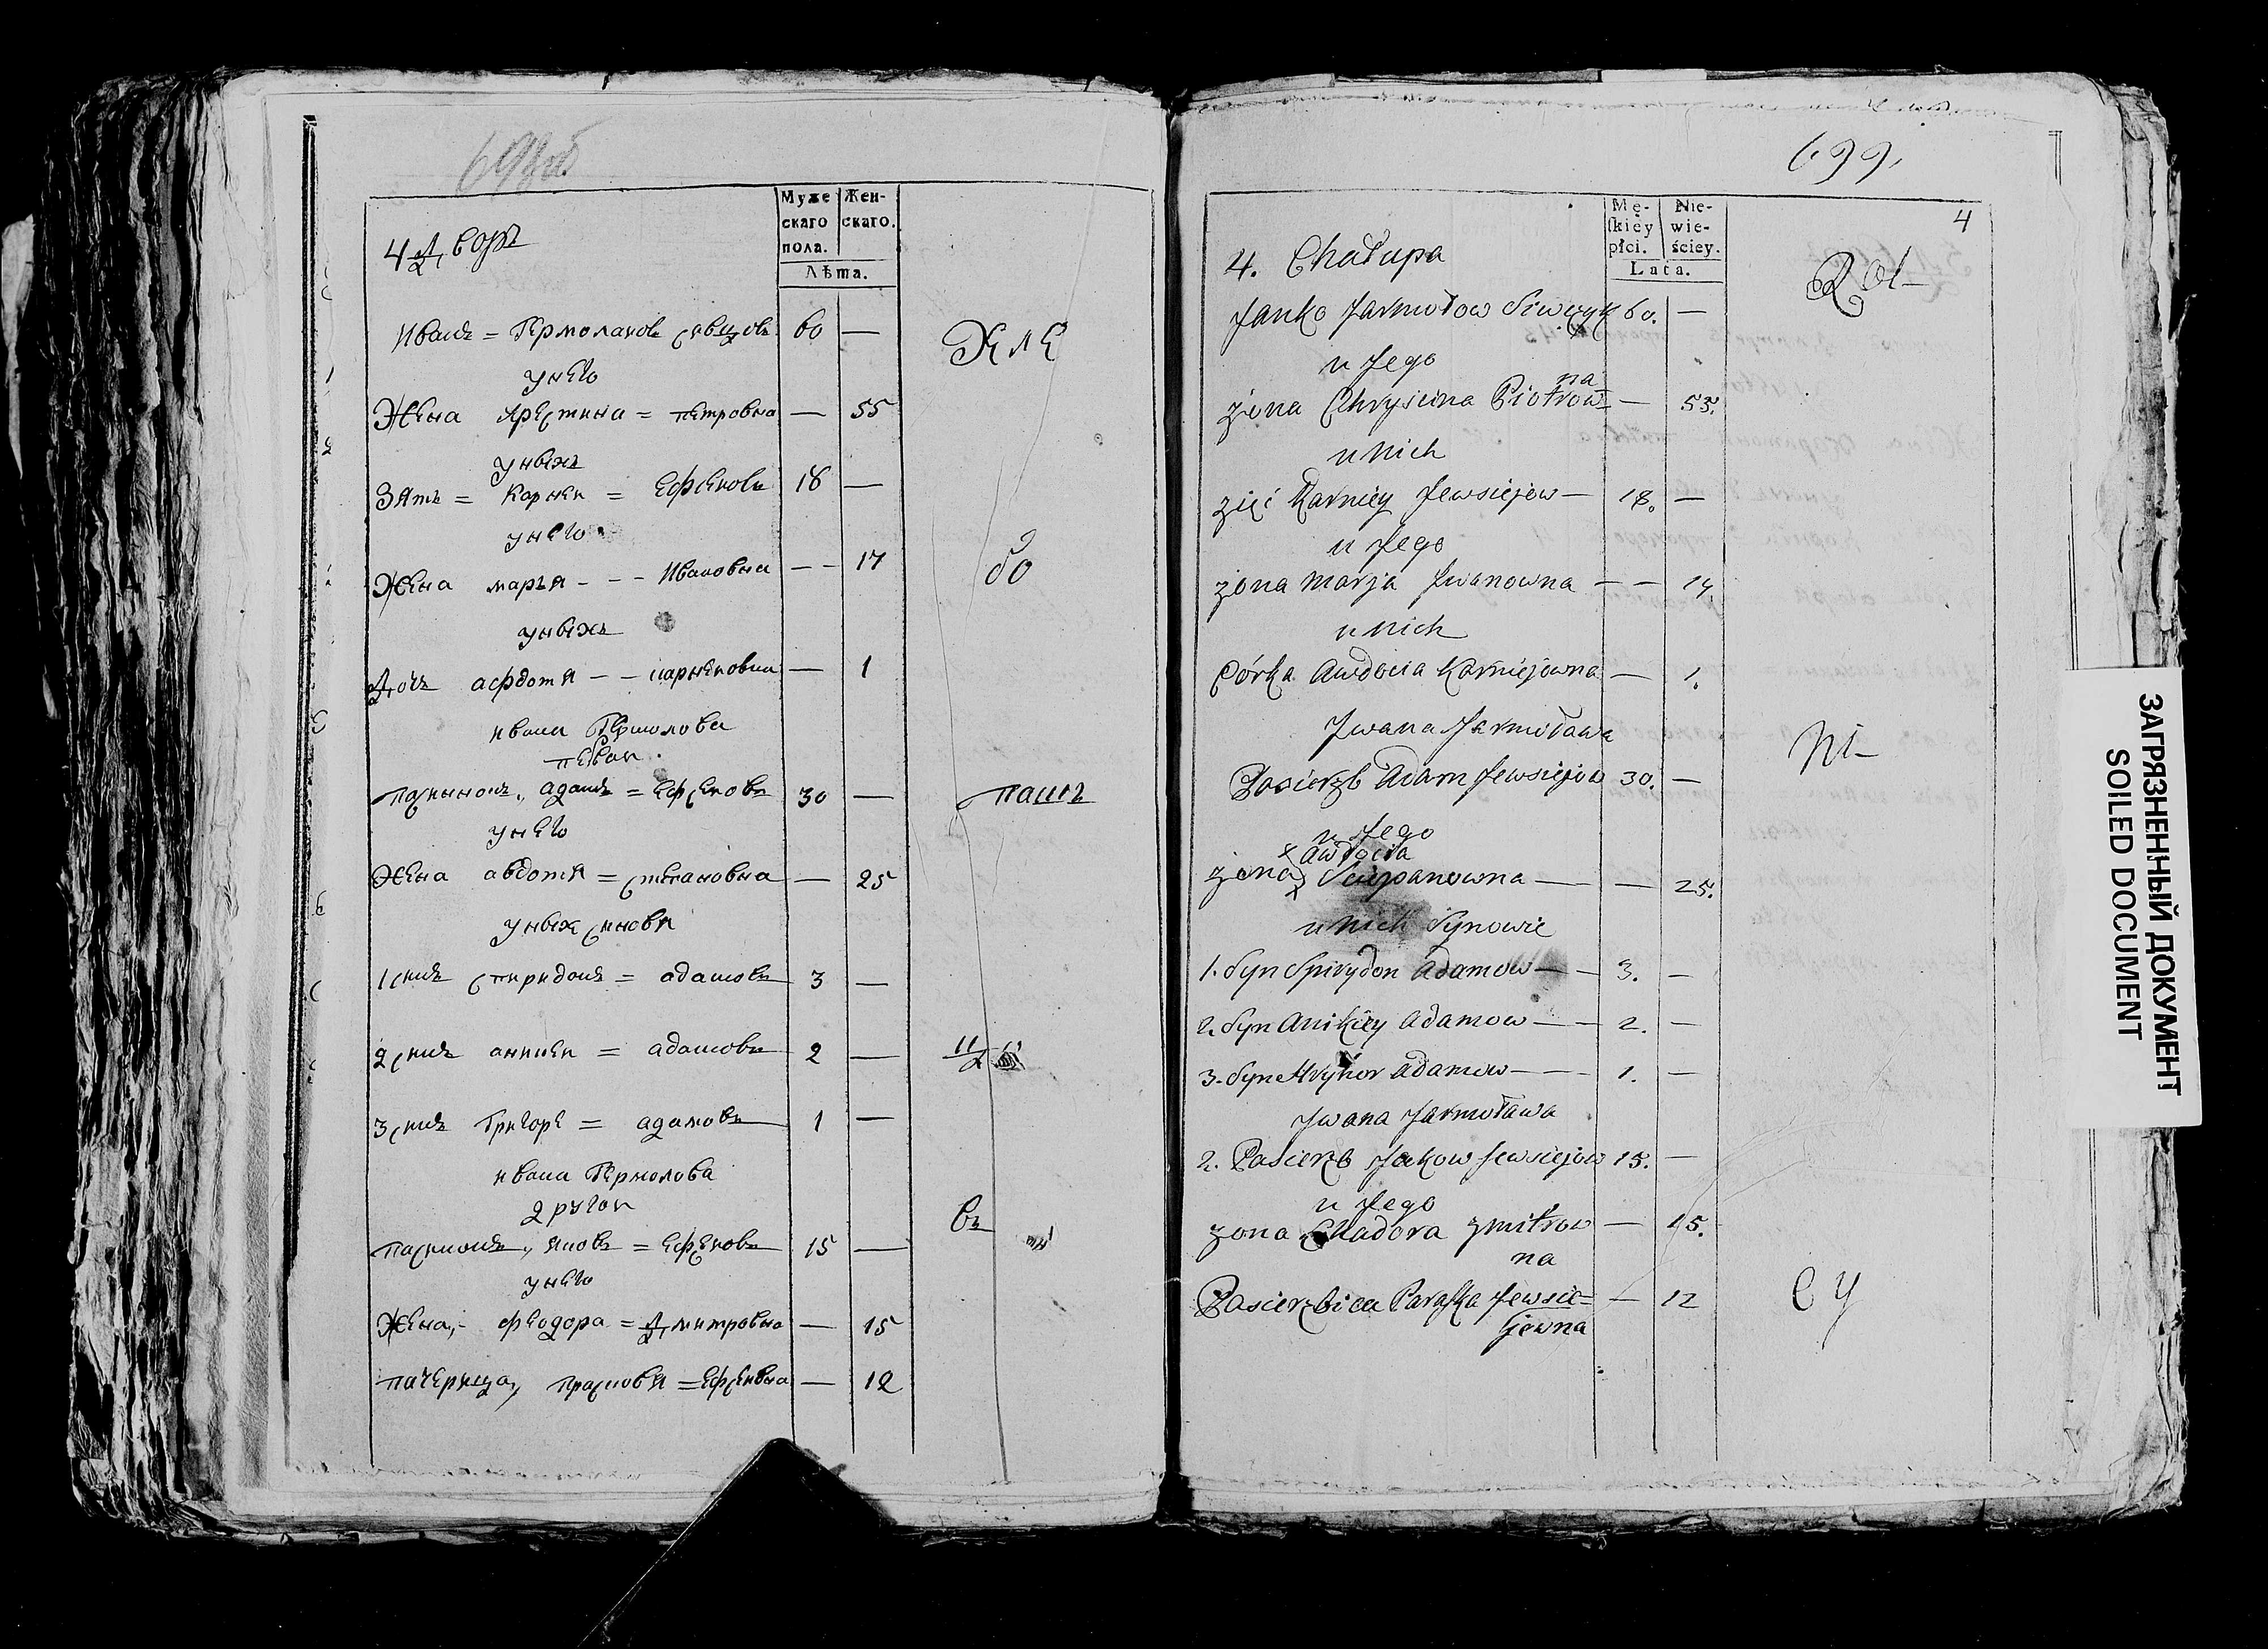 4 Дворъ
Муже
скаго
пола.
Жен-
скаго.
Лѣта.
Иванъ = Ермолаовъ 60 —
унего
Жена Крестина = петровна — 55
унвихъ
Зять = Карнеи = Ефсеиовъ 18 —
унего
Жена марья - - - Ивановна — — 17
унвихъ
Дочь афдотя - - карнеиовна — 1
ивана Ермолова
пасынокъ, адамъ = Ефсеиовъ 30 —
унего
Жена авдотя = степановна — 25
унвих синовя
1 синъ спиридонъ = адамовъ 3 —
2 синъ аникеи = адамовъ 2 —
3 синъ Григоре = адамовъ 1 —
ивана Ермолова
другои
пасинокъ, яковъ = Ефсеиовъ 15 —
унего
Жена, - феодора = Дмитровна — 15
пачерица, прасковя = Ефсеивна — 12
во
пашъ
въ
699.
4
4. Chałupa
Mę-
ſkiéy
płci.
Nie-
wie-
ściey.
Lata.
Janko Jarmołow Siwczyk 60. —
u Jego
żona Chryscina Piotrow=na — 55.
u Nich
zięć Karniey Jewsiejow — 18. —
u Jego
żona Marja Jwanowna — — 17.
u Nich
Córka Awdocia Karniejowna — 1.
Jwana Jarmoława
Pasierzb Adam Jewsiejow 30. —
u Jego
Awdocia
żona Sciepanowna — — 25.
u Nich Synowie
1. Syn Spirydon Adamow — — 3. —
2. Syn Anikiey Adamow — — 2. —
3. Syn Hryhor Adamow — — 1. —
Jwana Jarmoława
2. Pasierzb Jakow Jewsiejow 15. —
u Jego
żona Chadora Zmitrow — 15.
na
Pasierzbica Paraſka Jewsie= — 12
jowna
ЗАГРЯЗНЕННЫЙ ДОКУМЕНТ
SOILED DOCUMENT